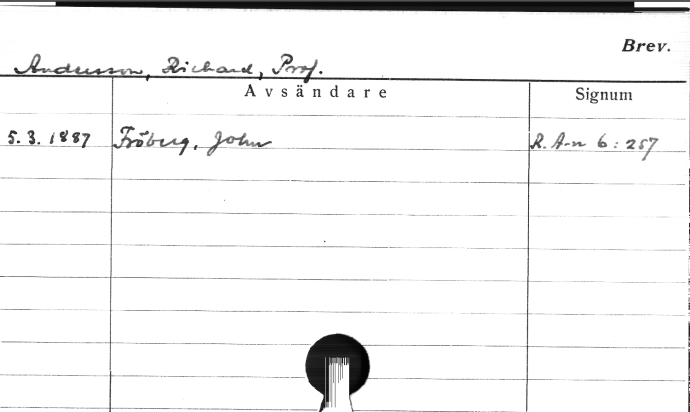 Brev.
Andersson, Richard, Prof.
Avsändare Signum
5.3.1887 Fröberg, John R. A-n 6:257